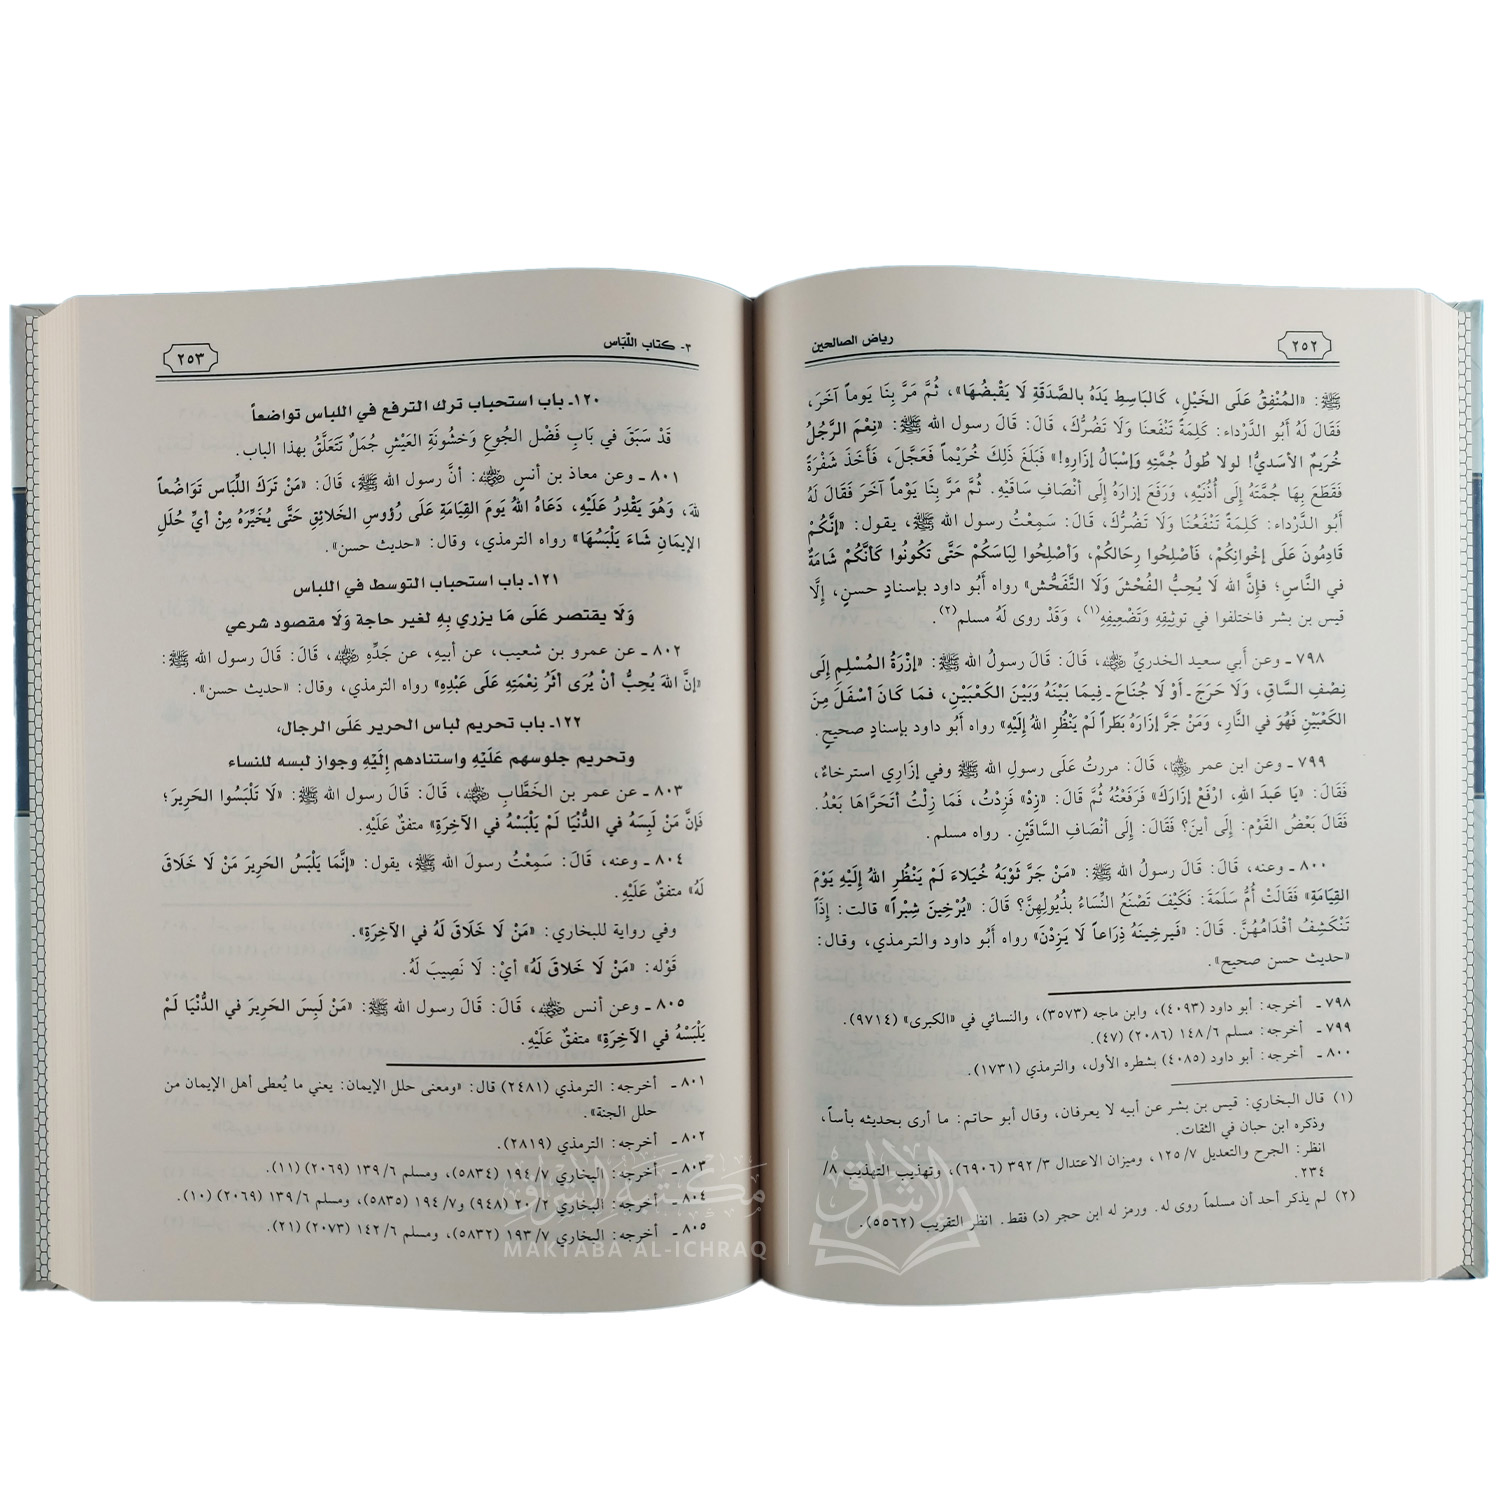 ٢٥٢
رياض الصالحين
ﷺ: «المُنْفِقُ عَلَى الخَيْلِ، كَالبَاسِطِ يَدَهُ بِالصَّدَقَةِ لَا يَقْبِضُهَا»، ثُمَّ مَرَّ بِنَا يَوماً آخَرَ،
فَقَالَ لَهُ أَبُو الدَّرْدَاء: كَلِمَةً تَنْفَعُنَا وَلَا تَضُرُّكَ، قَالَ: قَالَ رسول الله ﷺ: «نِعْمَ الرَّجُلُ
خُرَيمٌ الأسَديُّ! لولا طُولُ جُمَّتِهِ وَإسْبَالُ إزَارِهِ!» فَبَلَغَ ذَلِكَ خُرَيْماً فَعَجَّلَ، فَأَخَذَ شَفْرَةً
فَقَطَعَ بِهَا جُمَّتَهُ إِلَى أُذُنَيْهِ، وَرَفَعَ إزارَهُ إِلَى أنْصَافِ سَاقَيْهِ. ثُمَّ مَرَّ بِنَا يَوْماً آخَرَ فَقَالَ لَهُ
أَبُو الدَّرْدَاء: كَلِمَةً تَنْفَعُنَا وَلَا تَضُرُّكَ، قَالَ: سَمِعْتُ رسول الله ﷺ، يقول: «إنَّكُمْ
قَادِمُونَ عَلَى إخْوانِكُمْ، فَأصْلِحُوا رِحَالكُمْ، وَأصْلِحُوا لِبَاسَكُمْ حَتَّى تَكُونُوا كَأنَّكُمْ شَامَةٌ
في النَّاسِ؛ فإِنَّ الله لَا يُحِبُّ الفُحْشَ وَلَا التَّفَحُّش» رواه أَبُو داود بإسنادٍ حسنٍ، إِلَّا
قيس بن بشر فاختلفوا في توثِيقِهِ وَتَضْعِيفِهِ(١)، وَقَدْ روى لَهُ مسلم(٢).
٧٩٨ ـ وعن أَبي سعيد الخدريِّ ﷺ، قَالَ: قَالَ رسولُ الله ﷺ: «إزْرَةُ المُسْلِمِ إِلَى
نِصْفِ السَّاقِ، وَلَا حَرَجَ ـ أَوْ لَا جُنَاحَ ـ فِيمَا بَيْنَهُ وَبَيْنَ الكَعْبَيْنِ، فمَا كَانَ أسْفَلَ مِنَ
الكَعْبَيْنِ فَهُوَ في النَّارِ، وَمَنْ جَرَّ إزَارَهُ بَطَراً لَمْ يَنْظُرِ اللهُ إِلَيْهِ» رواه أَبُو داود بإسنادٍ صحيحٍ.
٧٩٩ ـ وعن ابن عمر، قَالَ: مررتُ عَلَى رسولِ الله ﷺ وفي إزَارِي استرخاءٌ،
فَقَالَ: «يَا عَبدَ اللهِ، ارْفَعْ إزَارَكَ» فَرَفَعْتُهُ ثُمَّ قَالَ: «زِدْ» فَزِدْتُ، فَمَا زِلْتُ أتَحَرَّاهَا بَعْدُ.
فَقَالَ بَعْضُ القَوْم: إِلَى أينَ؟ فَقَالَ: إِلَى أنْصَافِ السَّاقَيْنِ. رواه مسلم.
٨٠٠ ـ وعنه، قَالَ: قَالَ رسول الله ﷺ: «مَنْ جَرَّ ثَوْبَهُ خُيَلاءَ لَمْ يَنْظُرِ اللهُ إِلَيْهِ يَوْمَ
القِيَامَةِ» فَقَالَتْ أُمُّ سَلَمَةَ: فَكَيْفَ تَصْنَعُ النِّسَاءُ بذُيُولِهِنَّ؟ قَالَ: «يُرْخِينَ شِبْراً» قالت: إِذَاً
تَنْكَشِفُ أقْدَامُهُنَّ. قَالَ: «فَيرخِينَهُ ذِرَاعاً لَا يَزِدْنَ» رواه أَبُو داود والترمذي، وقال:
«حديث حسن صحيح».
٧٩٨ ـ أخرجه: أبو داود (٤٠٩٣)، وابن ماجه (٣٥٧٣)، والنسائي في «الكبرى» (٩٧١٤).
٧٩٩ ـ أخرجه: مسلم ١٤٨/٦ (٢٠٨٦) (٤٧).
٨٠٠ ـ أخرجه: أبو داود (٤٠٨٥) بشطره الأول، والترمذي (١٧٣١).
(١) قال البخاري: قيس بن بشر عن أبيه لا يعرفان، وقال أبو حاتم: ما أرى بحديثه بأساً،
وذكره ابن حبان في الثقات.
انظر: الجرح والتعديل ١٢٥/٧، وميزان الاعتدال ٣٩٢/٣ (٦٩٠٦)، وتهذيب التهذيب ٨/
٢٣٤.
(٢) لم يذكر أحد أن مسلماً روى له. ورمز له ابن حجر (د) فقط. انظر التقريب (٥٥٦٢).
٣- كتاب اللّبَاس
٢٥٣
١٢٠ـ باب استحباب ترك الترفع في اللباس تواضعاً
قَدْ سَبَقَ في بَابِ فَضْل الجُوعِ وَخشُونَةِ العَيْشِ جُمَلٌ تَتَعَلَّقُ بهذا الباب.
٨٠١ ـ وعن معاذ بن أنس: أنَّ رسول الله ﷺ، قَالَ: «مَنْ تَرَكَ اللِّبَاس تَوَاضُعاً
للهِ، وَهُوَ يَقْدِرُ عَلَيْهِ، دَعَاهُ اللهُ يَومَ القِيَامَةِ عَلَى رُؤوسِ الخَلائِقِ حَتَّى يُخَيِّرَهُ مِنْ أيِّ حُلَلِ
الإيمَانِ شَاءَ يَلْبَسُهَا» رواه الترمذي، وقال: «حديث حسن».
١٢١ـ باب استحباب التوسط في اللباس
وَلَا يقتصر عَلَى مَا يزري بِهِ لغير حاجة وَلَا مقصود شرعي
٨٠٢ ـ عن عمرو بن شعيب، عن أبيهِ، عن جَدِّهِ، قَالَ: قَالَ رسول الله ﷺ:
«إنَّ اللهَ يُحِبُّ أنْ يُرَى أثَرُ نِعْمَتِهِ عَلَى عَبْدِهِ» رواه الترمذي، وقال: «حديث حسن».
١٢٢ـ باب تحريم لباس الحرير عَلَى الرجال،
وتحريم جلوسهم عَلَيْهِ واستنادهم إِلَيْهِ وجواز لبسه للنساء
٨٠٣ ـ عن عمر بن الخَطَّابِ، قَالَ: قَالَ رسول الله ﷺ: «لَا تَلْبَسُوا الحَرِيرَ؛
فَإنَّ مَنْ لَبِسَهُ في الدُّنْيَا لَمْ يَلْبَسْهُ في الآخِرَةِ» متفقٌ عَلَيْهِ.
٨٠٤ ـ وعنه، قَالَ: سَمِعْتُ رسولَ الله ﷺ، يقول: «إنَّمَا يَلْبَسُ الحَرِيرَ مَنْ لَا خَلَاقَ
لَهُ» متفقٌ عَلَيْهِ.
وفي رواية للبخاري: «مَنْ لَا خَلَاقَ لَهُ في الآخِرَةِ».
قَوْله: «مَنْ لَا خَلاقَ لَهُ» أيْ: لَا نَصِيبَ لَهُ.
٨٠٥ ـ وعن أنس، قَالَ: قَالَ رسول الله ﷺ: «مَنْ لَبِسَ الحَرِيرَ في الدُّنْيَا لَمْ
يَلْبَسْهُ في الآخِرَةِ» متفقٌ عَلَيْهِ.
٨٠١ ـ أخرجه: الترمذي (٢٤٨١) قال: «ومعنى حلل الإيمان: يعني ما يُعطى أهل الإيمان من
حلل الجنة».
٨٠٢ ـ أخرجه: الترمذي (٢٨١٩).
٨٠٣ ـ أخرجه: البخاري ١٩٤/٧ (٥٨٣٤)، ومسلم ١٣٩/٦ (٢٠٦٩) (١١).
٨٠٤ ـ أخرجه: البخاري ٢٠/٢ (٩٤٨) و١٩٤/٧ (٥٨٣٥)، ومسلم ١٣٩/٦ (٢٠٦٩) (١٠).
٨٠٥ ـ أخرجه: البخاري ١٩٣/٧ (٥٨٣٢)، ومسلم ١٤٢/٦ (٢٠٧٣) (٢١).
مكتبة الإشراق
MAKTABA AL-ICHRAQ
الإشراق